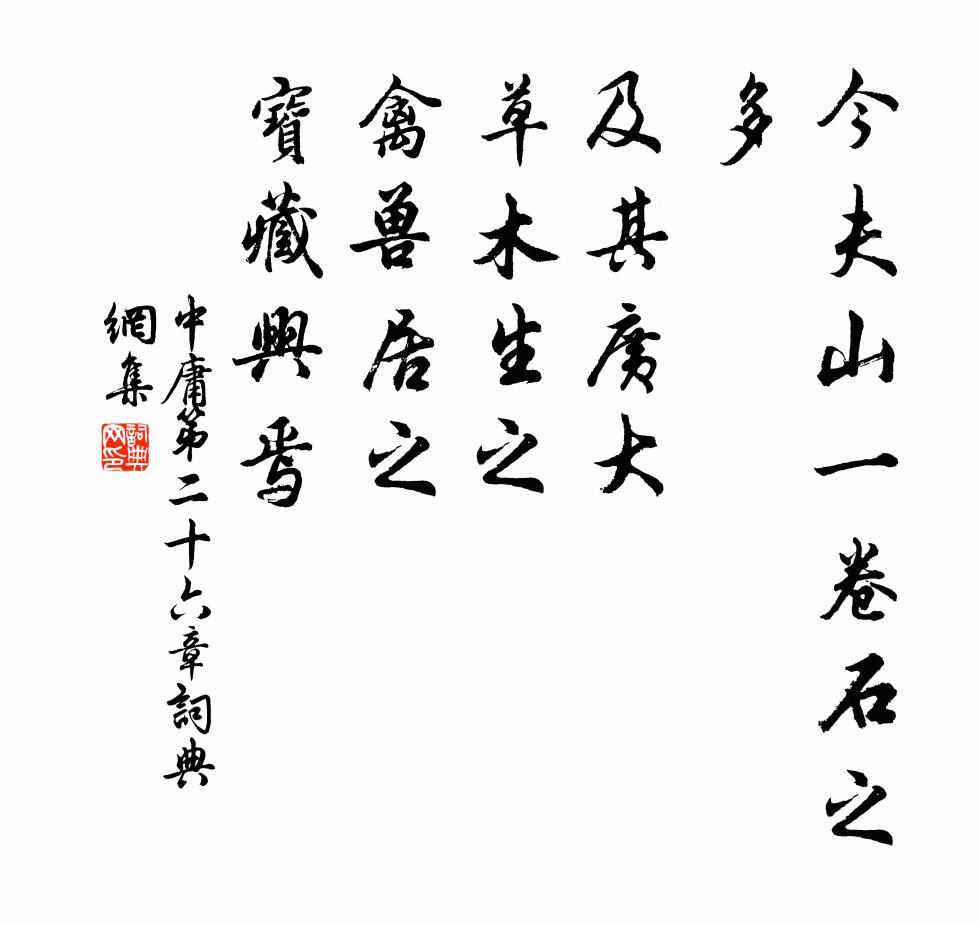 今夫山一卷石之
多
及其廣大
草木生之
禽兽居之
寶藏興焉
中庸第二十六章詞典
網集
詞典網印